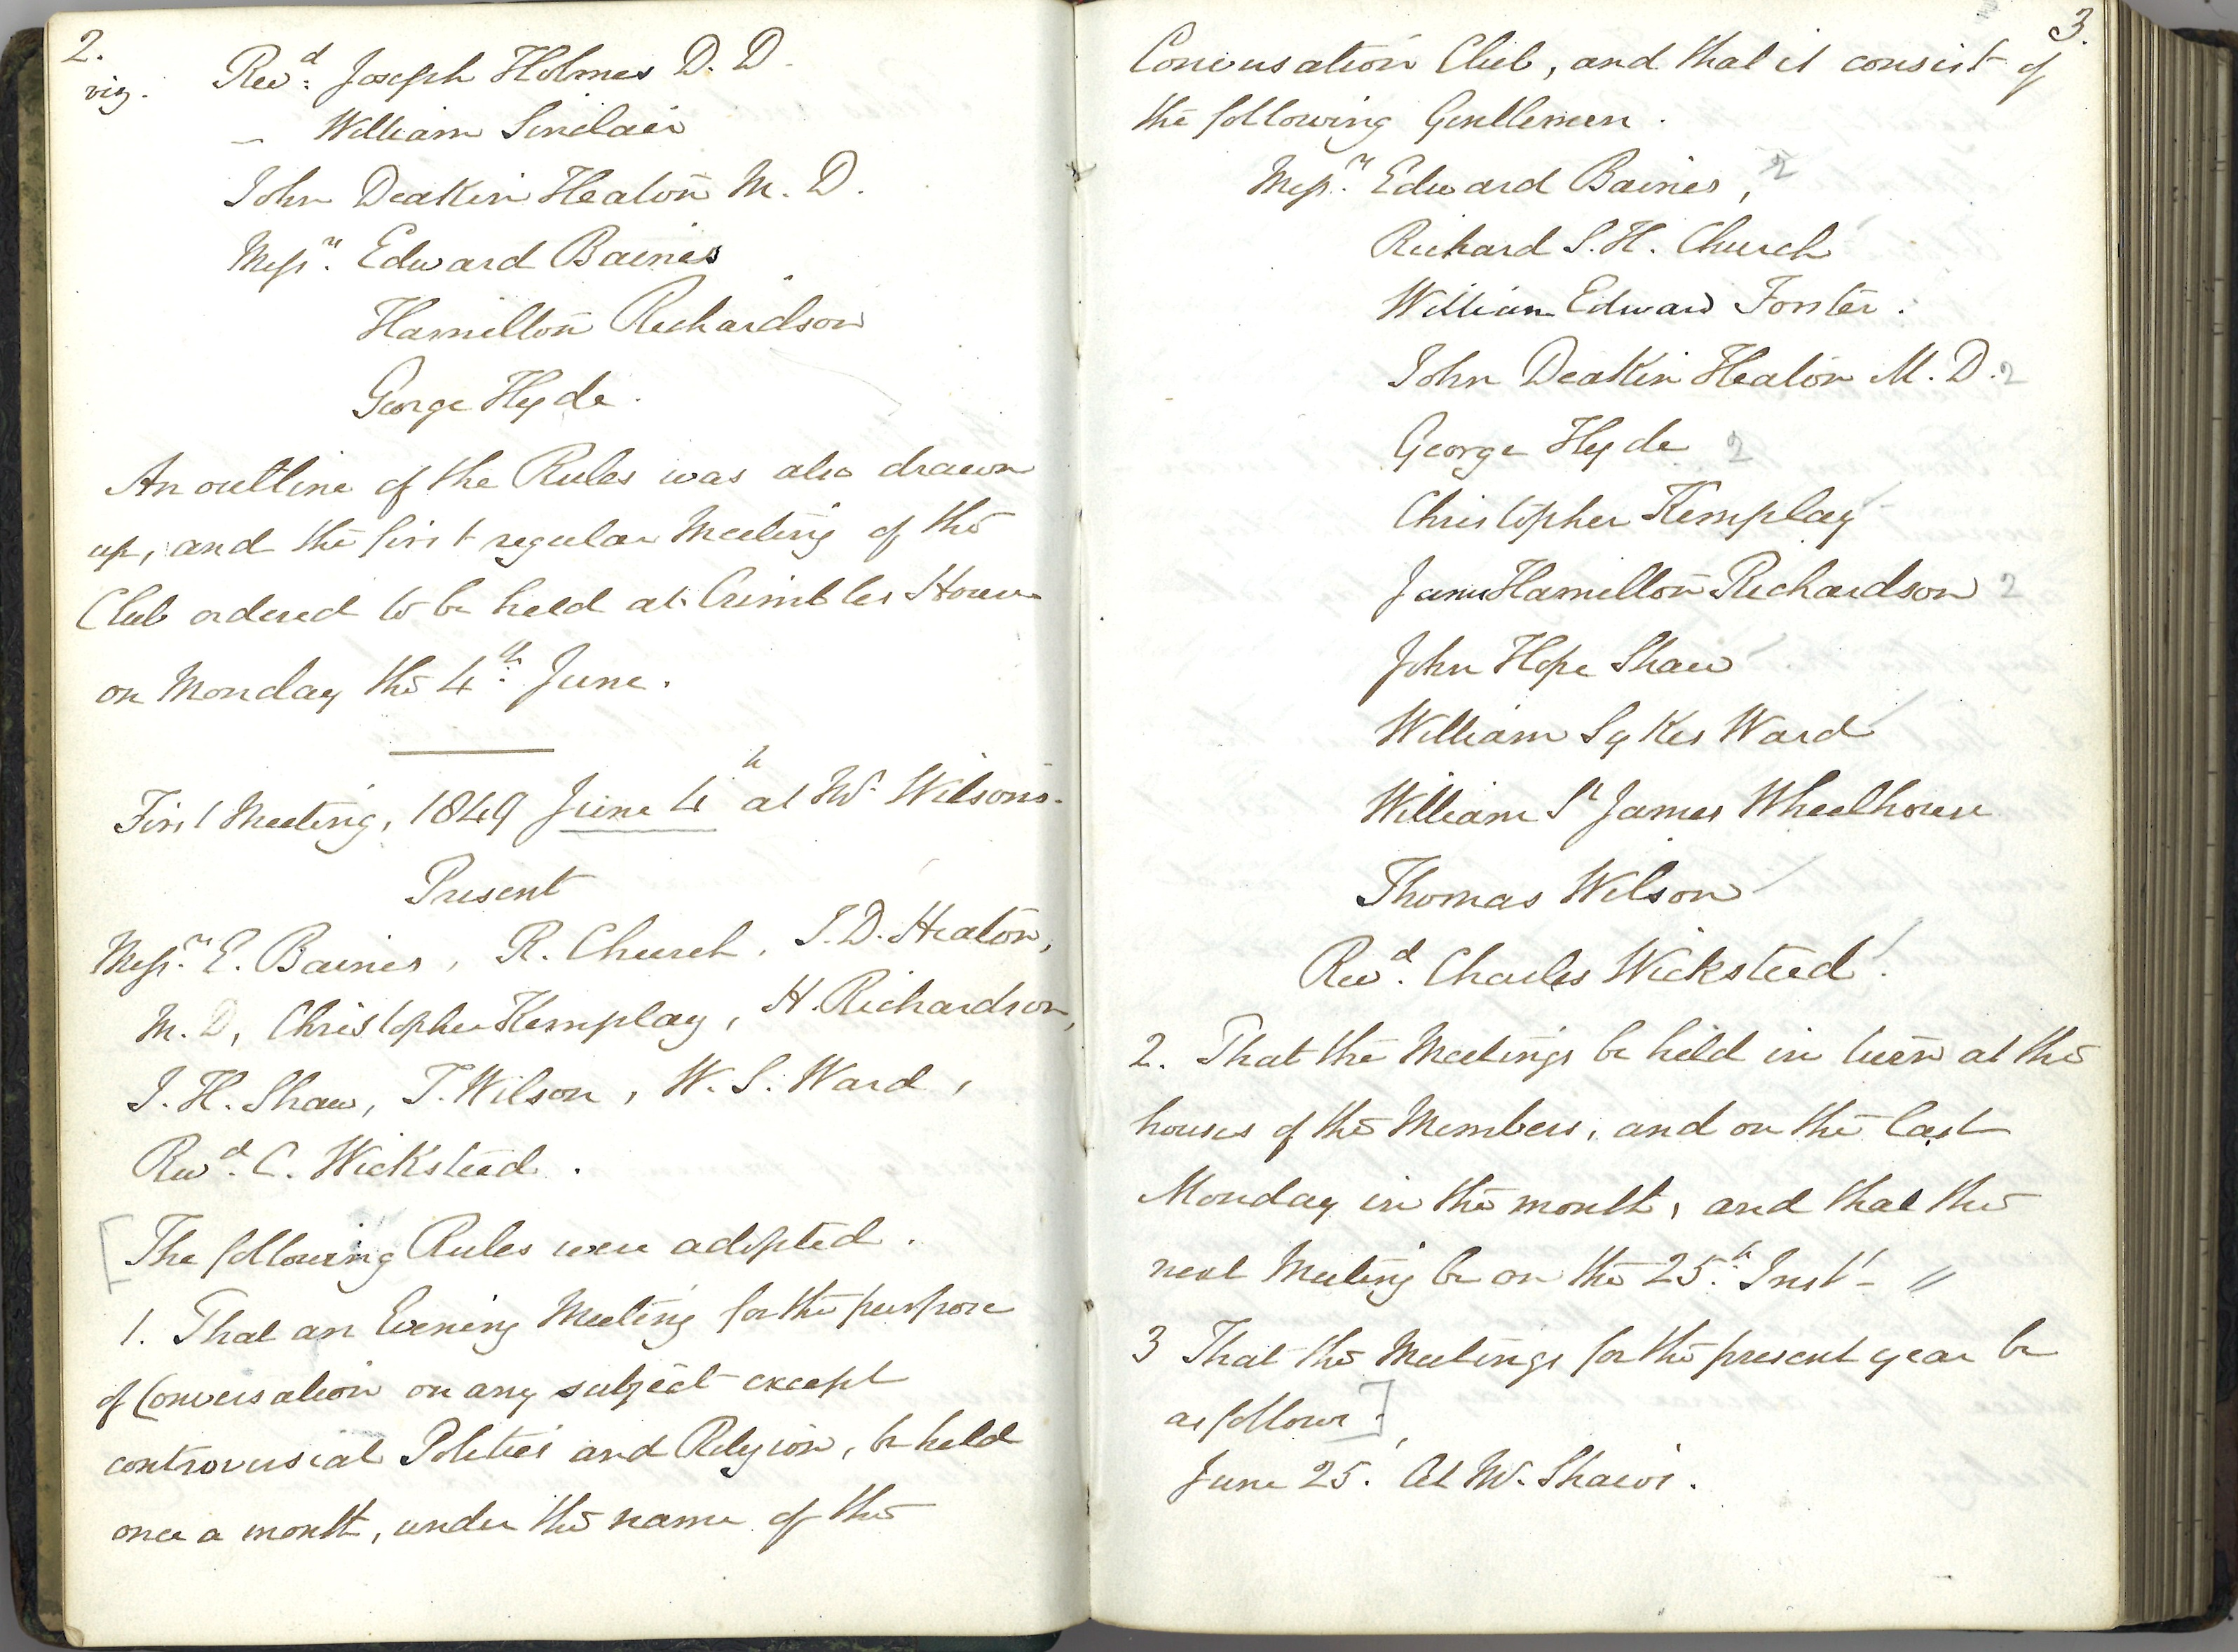 2.
viz. Revd: Joseph Holmes D. D.
– William Sinclair
John Deakin Heaton M. D.
Messrs. Edward Baines
Hamilton Richardson
George Hyde.
An outline of the Rules was also drawn
up, and the first regular Meeting of the
Club ordered to be held at Crimbles House
on Monday the 4th. June.
First Meeting, 1849 June 4th at Mr. Wilsons.
Present
Messrs. E. Baines, R. Church, J. D. Heaton,
M. D, Christopher Kemplay, H. Richardson,
J. H. Shaw, T. Wilson, W. S. Ward,
Revd. C. Wicksteed.
[The following Rules were adopted.
1. That an Evening Meeting for the purpose
of Conversation on any subject except
controversial Politics and Religion, be held
once a month, under the name of the
3.
Conversation Club, and that it consist of
the following Gentlemen.
Messrs. Edward Baines, 2
Richard S. H. Church
William Edward Forster.
John Deakin Heaton M. D. 2
George Hyde 2
Christopher Kemplay
James Hamilton Richardson 2
John Hope Shaw
William Sykes Ward
William St James Wheelhouse
Thomas Wilson
Revd. Charles Wicksteed.
2. That the Meetings be held in turn at the
houses of the Members, and on the last
Monday in the month, and that the
next Meeting be on the 25.th Inst– "
3 That the Meetings for the present year be
as follows.]
June 25. At Mr. Shaws.